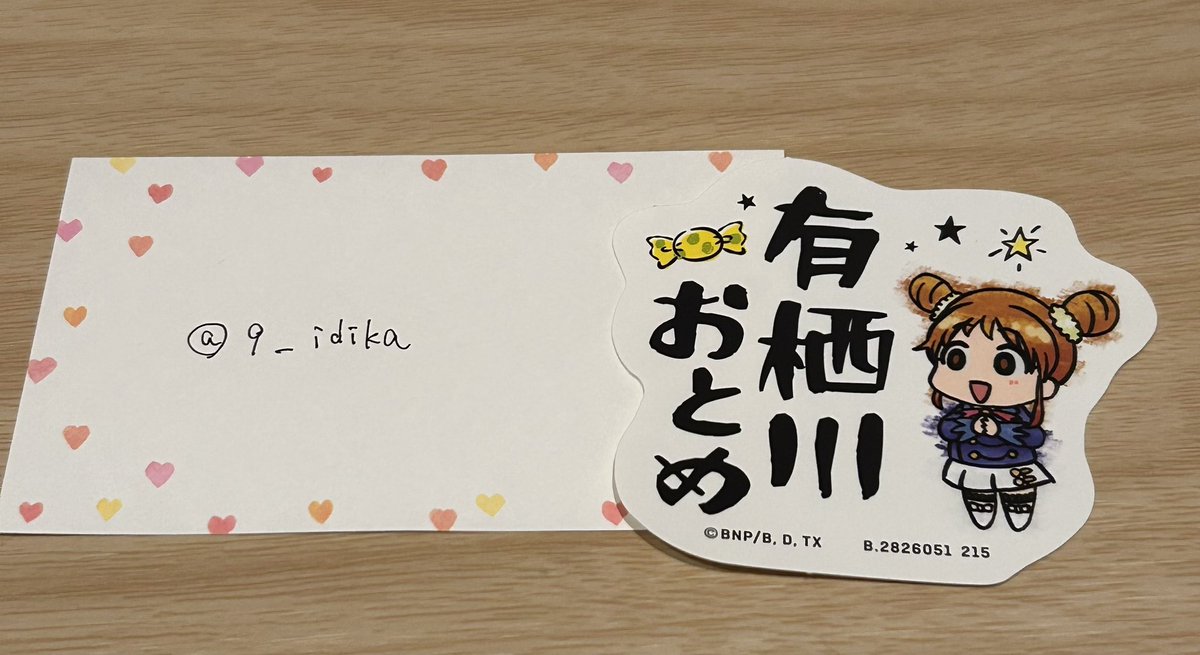 @9_idika
有栖川
おとめ
©BNP/B, D, TX
B.2826051 215